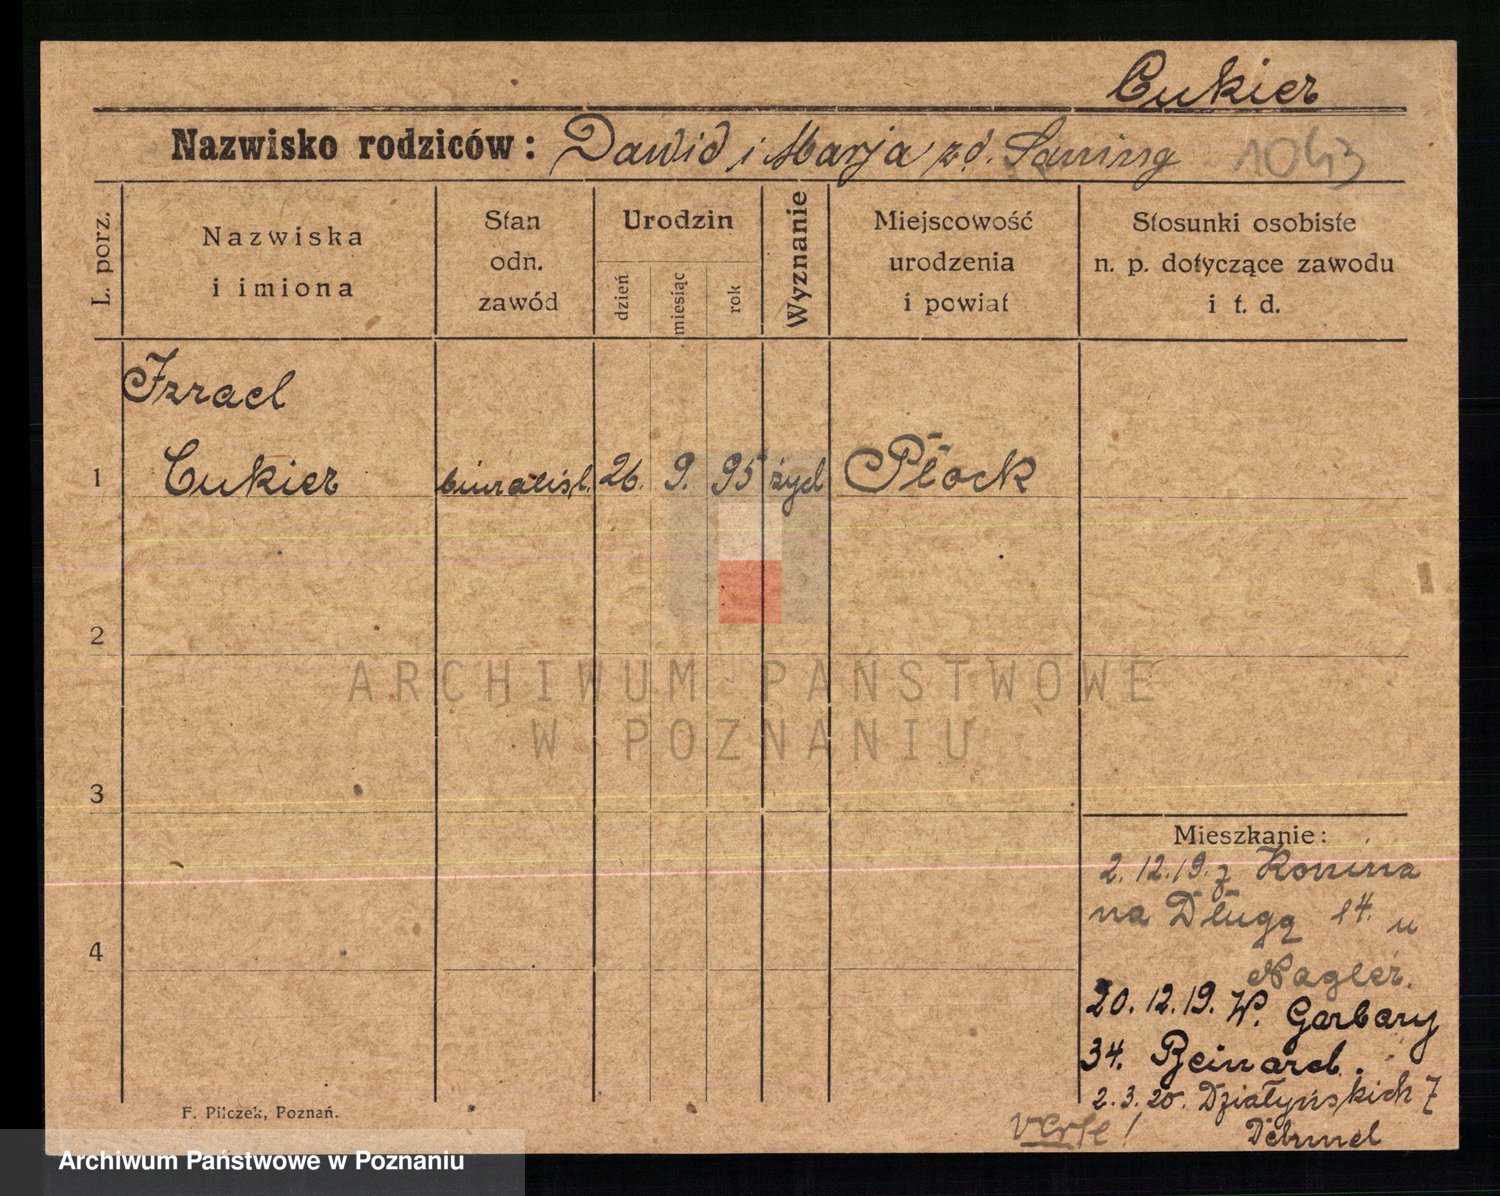 Cukier
Nazwisko rodziców: Dawid i Marja zd. Laning 1043
L. porz.
Nazwiska
i imiona
Stan
odn.
zawód
Urodzin
dzień miesiąc rok
Wyznanie
Miejscowość
urodzenia
i powiat
Stosunki osobiste
n. p. dotyczące zawodu
i t. d.
Izrael
1 Cukier biuralist. 26. 9. 95 żyd Płock
2
ARCHIWUM PAŃSTWOWE
W POZNANIU
3
Mieszkanie:
2.12.19. z Konina
na Długą 14. u
4
Nagler.
20.12.19. W. Garbary
34. Beinard.
2.3.20. Działyńskich 7
F. Pilczek, Poznań.
verte!
Archiwum Państwowe w Poznaniu